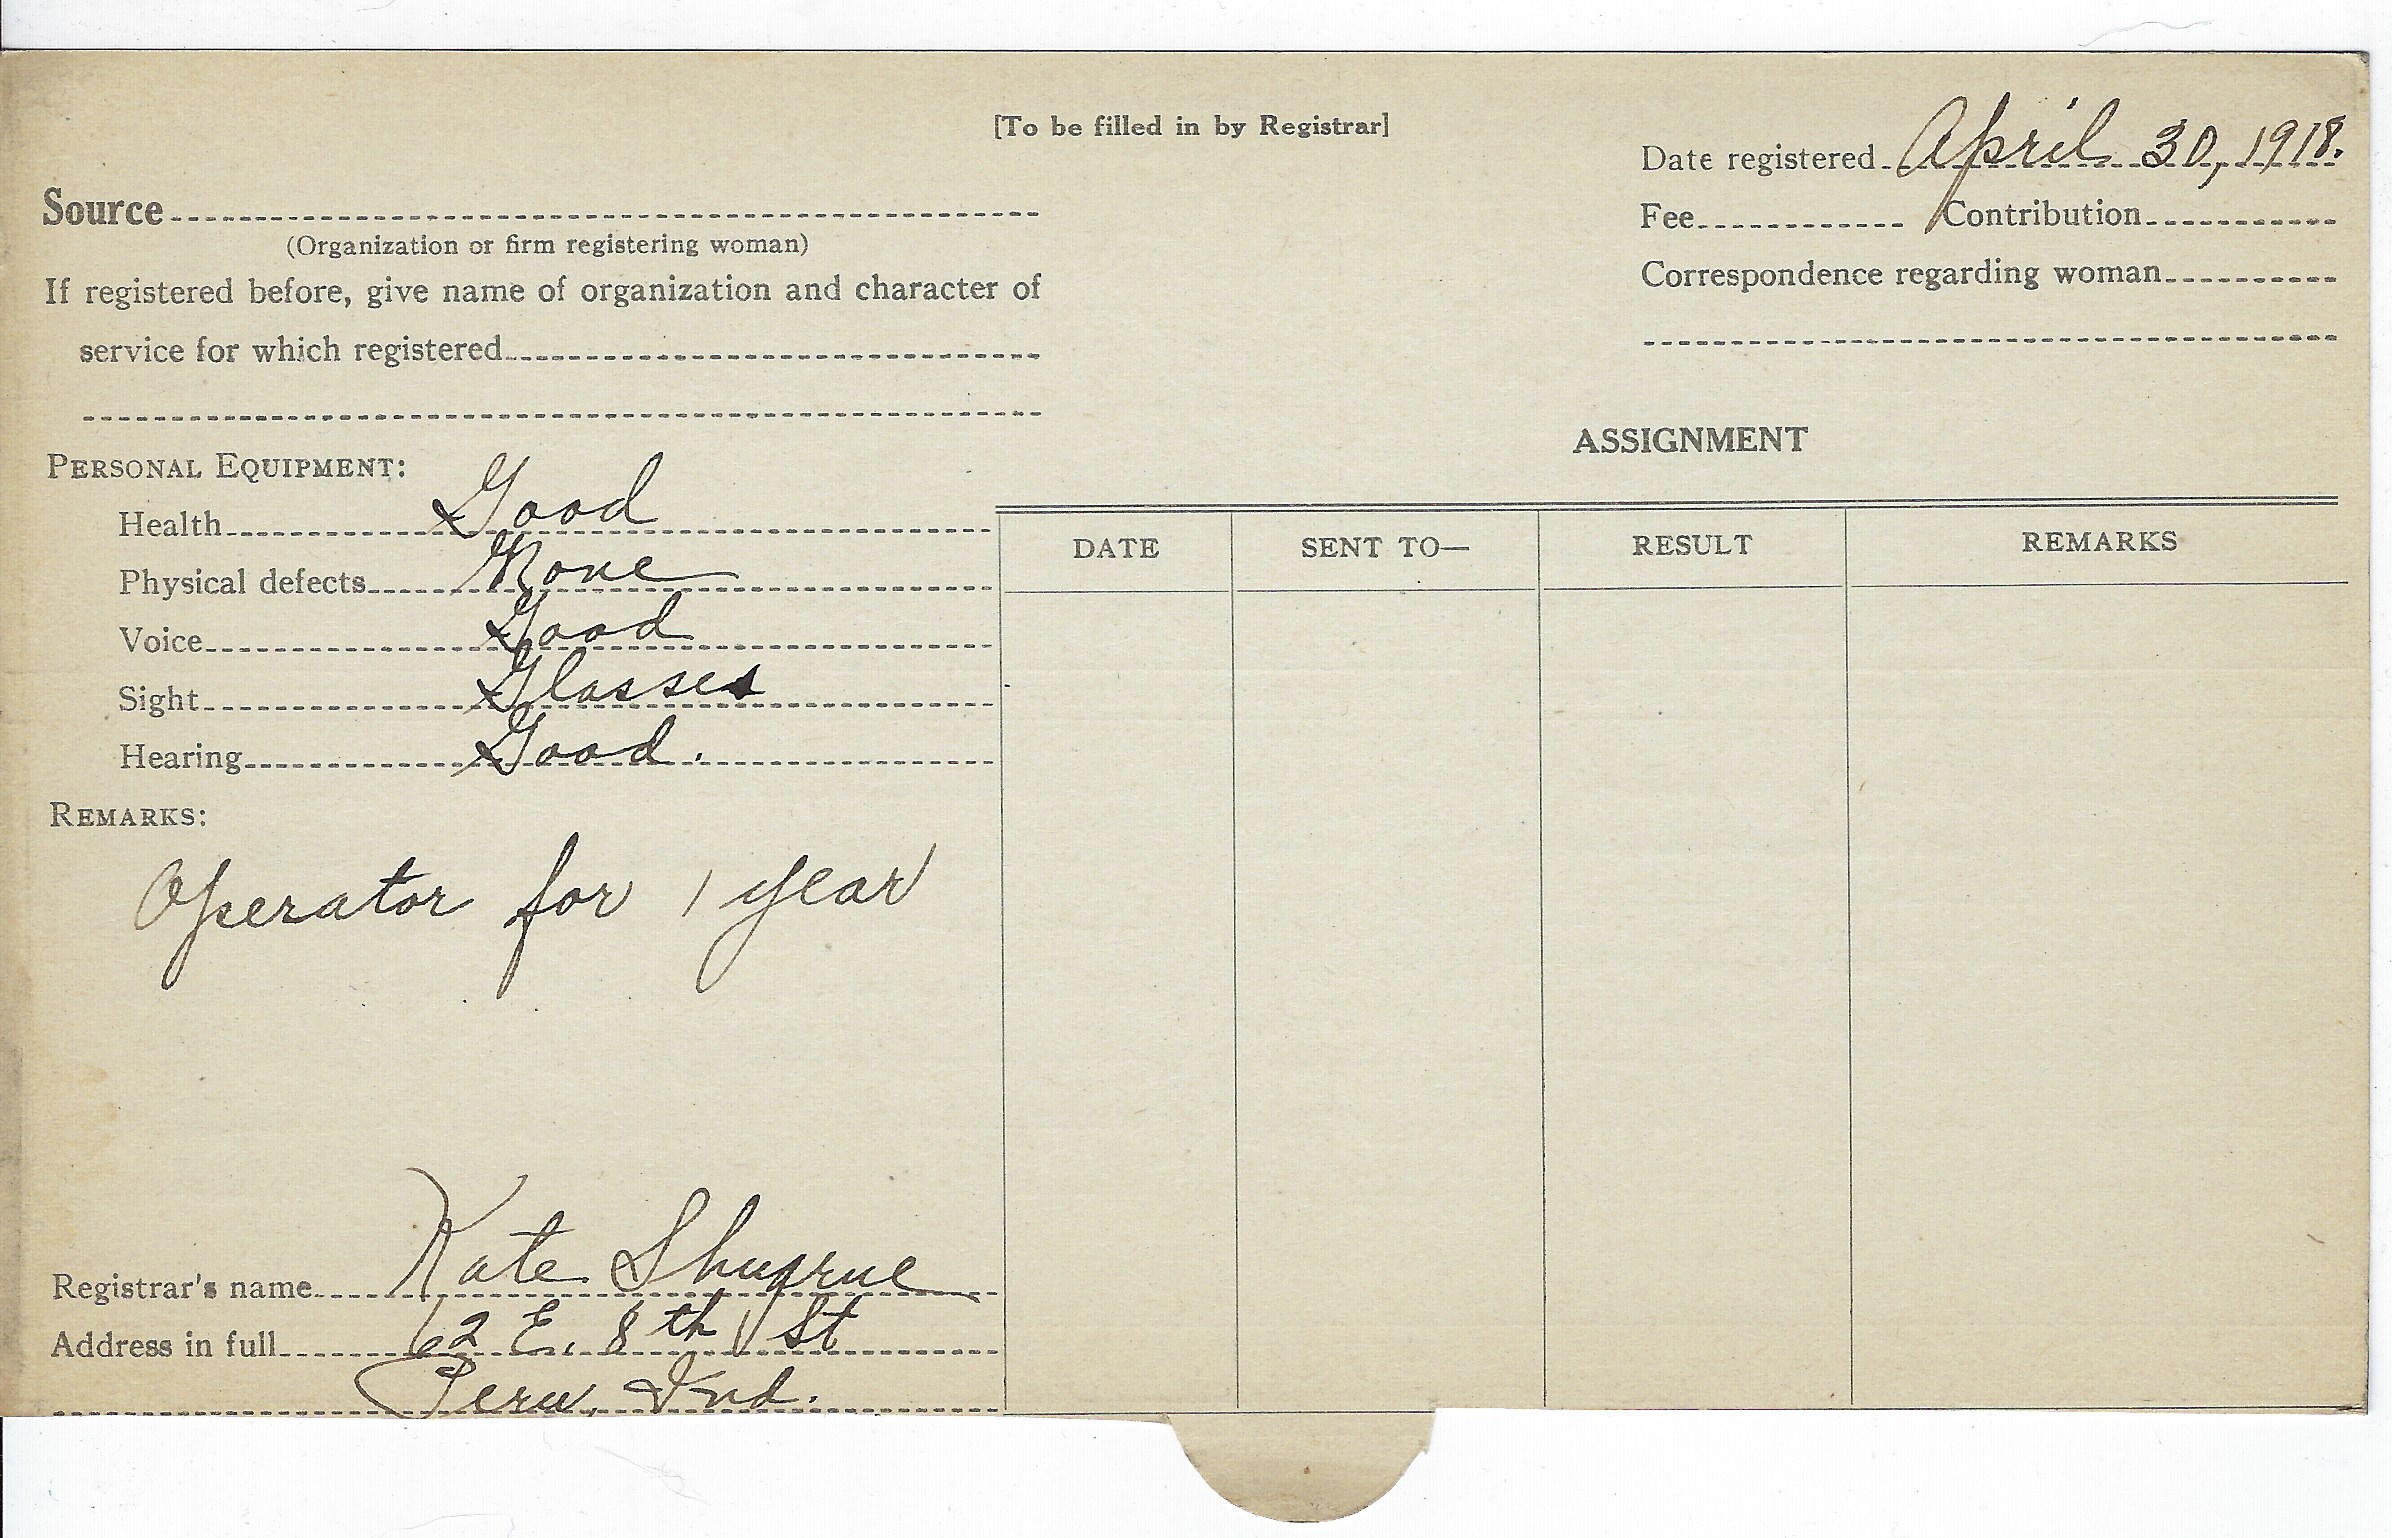 [To be filled in by Registrar]
Date registered April 30, 1918.
Source
Fee Contribution
(Organization or firm registering woman)
Correspondence regarding woman
If registered before, give name of organization and character of
service for which registered
ASSIGNMENT
PERSONAL EQUIPMENT:
Health Good
Physical defects None
Voice Good
Sight Glasses
Hearing Good.
DATE SENT TO— RESULT REMARKS
REMARKS:
Operator for 1 year
Registrar's name Kate Shugrue
Address in full 62 E. 8th St
Peru, Ind.